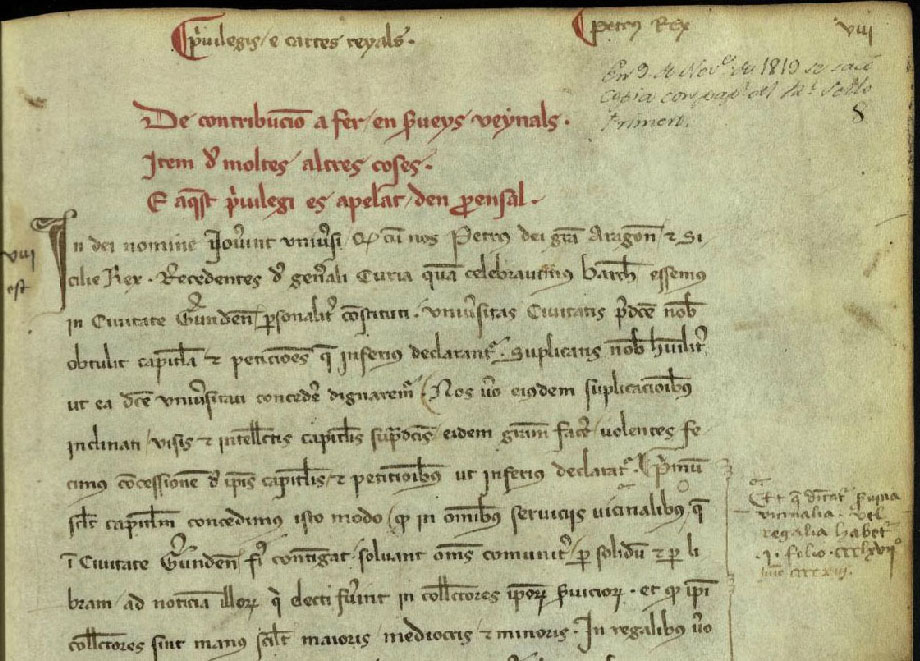 Privilegis e cartes reyals.
Petrus Rex
viii
En 9 de Nov.e de 1819 se sacó
Copia con pap.l del Sello
Primero.
8
De contribucio a fer en serveys veynals.
Item de moltes altres coses.
E aquest privilegi es apelat den provensal.
viii
est
In dei nomine Noverint universi Quod cum nos Petrus dei gra Aragon et Si
cilie Rex. Recedentes de generali Curia quam celebravimus Barchn essemus
in Civitate Gerunden personaliter constituti. universitas Civitatis predce nob
obtulit capitula et peticiones que inferius declarantur. Suplicans nob humiliter
ut ea dce universitati concedere dignaremur Nos vero eiusdem suplicacionibus
inclinati visis et intellectis capitulis supradictis eidem gram facere volentes fe
cimus concessionem de ipsis capitulis et peticionibus ut inferius declaratur. Primum
scilicet capitulum concedimus isto modo quod in omnibus serviciis vicinalibus que
in Civitate Gerunden fieri contigat solvant omnes comuniter per solidum et per li
bram ad noticiam illorum qui electi fuerint in collectores ipsorum serviciorum. et quod ipsi
collectores sint manus scilicet maioris mediocris et minoris. In regalibus vero
Et que dicantur servicia
vicinalia vel
regalia habetur
folio cccclxvii